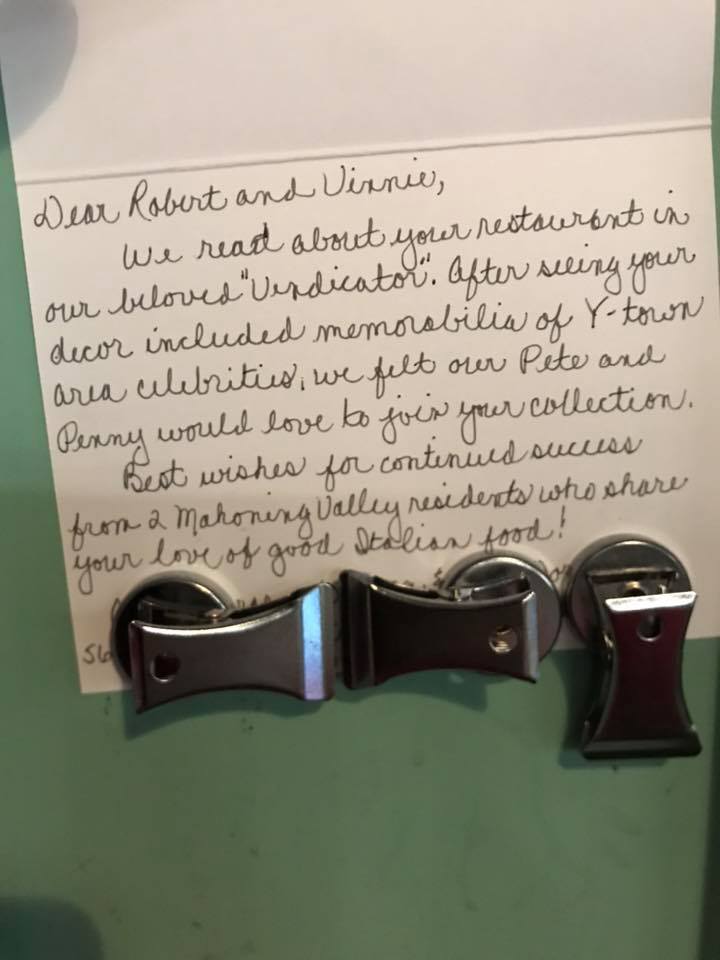 Dear Robert and Vinnie,
We read about your restaurant in
our beloved "Vindicator". After seeing your
decor included memorabilia of Y-town
area celebrities, we felt our Pete and
Penny would love to join your collection.
Best wishes for continued success
from 2 Mahoning Valley residents who share
your love of good Italian food!
56